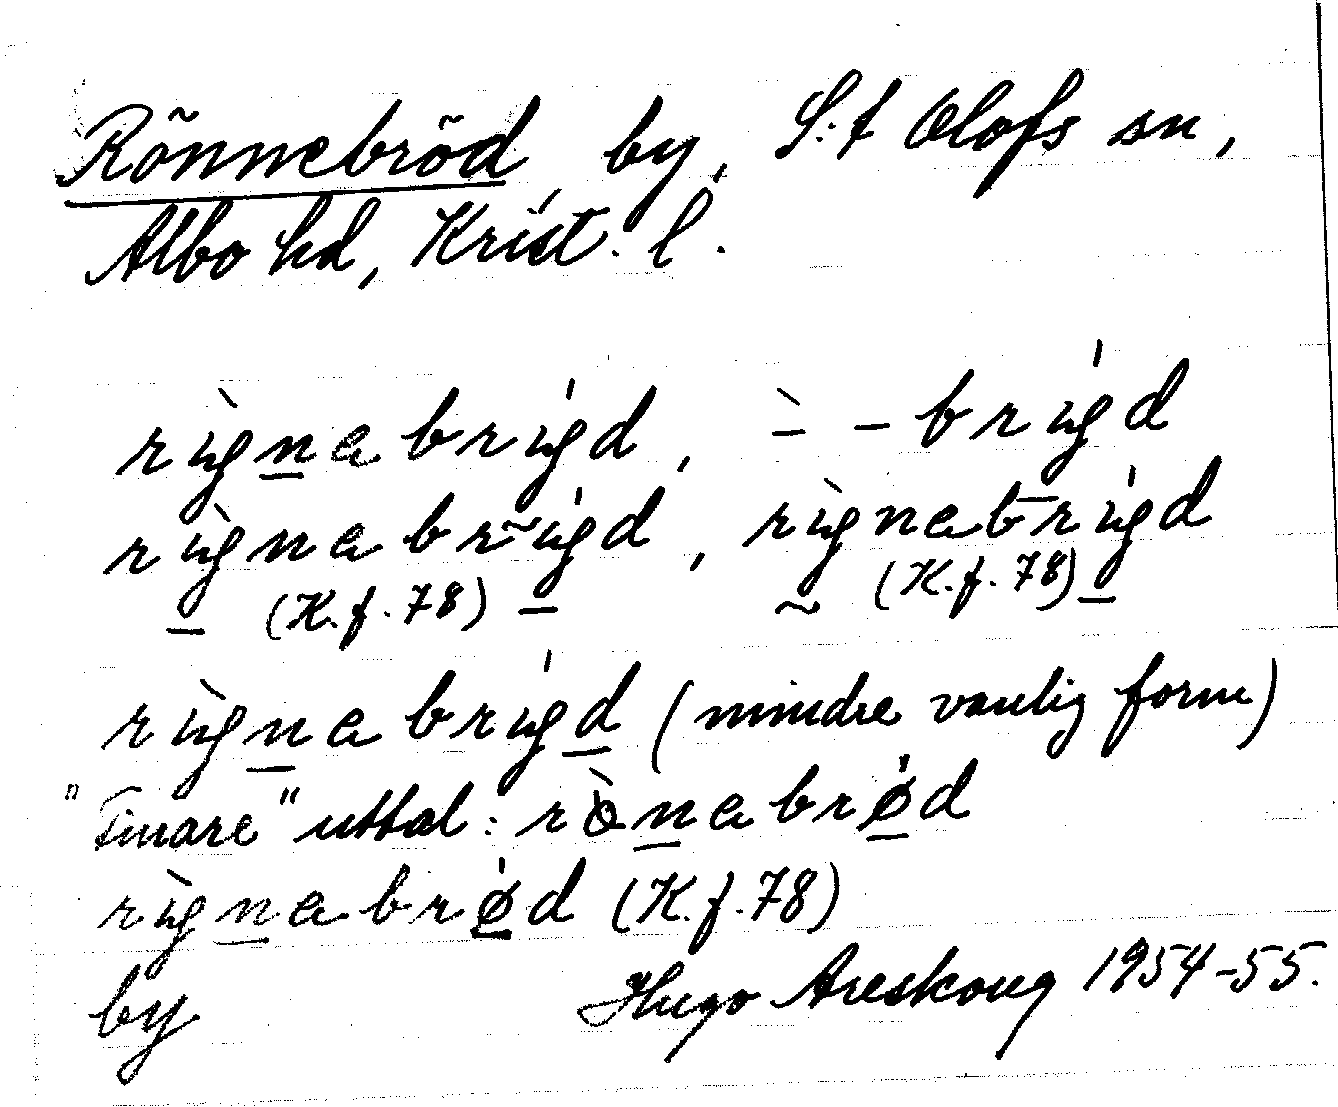 Rönnebröd, by, S:t Olofs sn,
Albo hd, Krist. l.
rìgnabrígd, ̀– –brígd
rìgnabrígd, rìgnabrígd
(K.f. 78) (K.f. 78)
rìgnabrígd (mindre vanlig form)
"Finare" uttal: rònabrǿd
rìgnabrǿd (K.f. 78)
by Hugo Areskoug 1954-55.